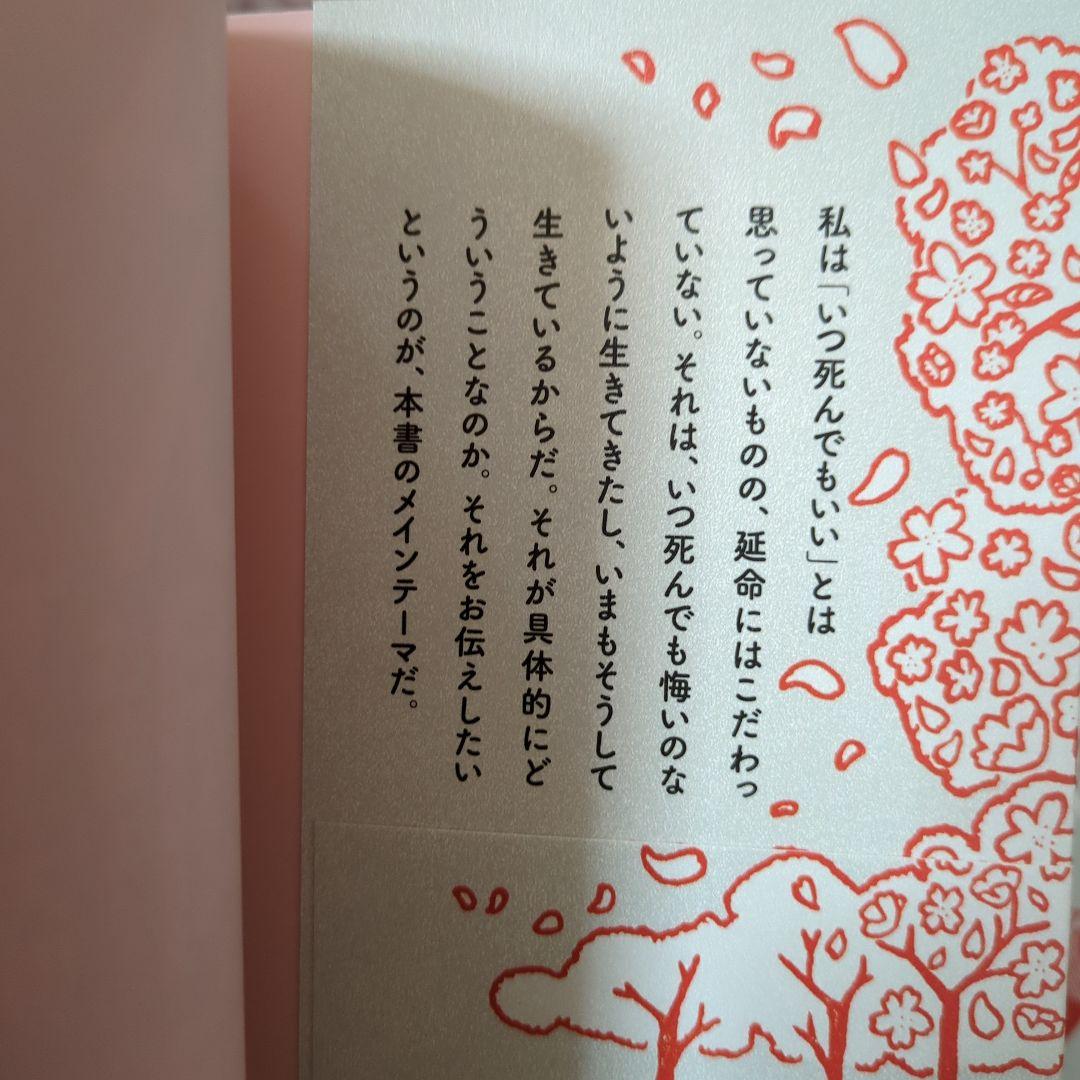 私は「いつ死んでもいい」とは
思っていないものの、延命にはこだわっ
ていない。それは、いつ死んでも悔いのな
いように生きてきたし、いまもそうして
生きているからだ。それが具体的にど
ういうことなのか。それをお伝えしたい
というのが、本書のメインテーマだ。